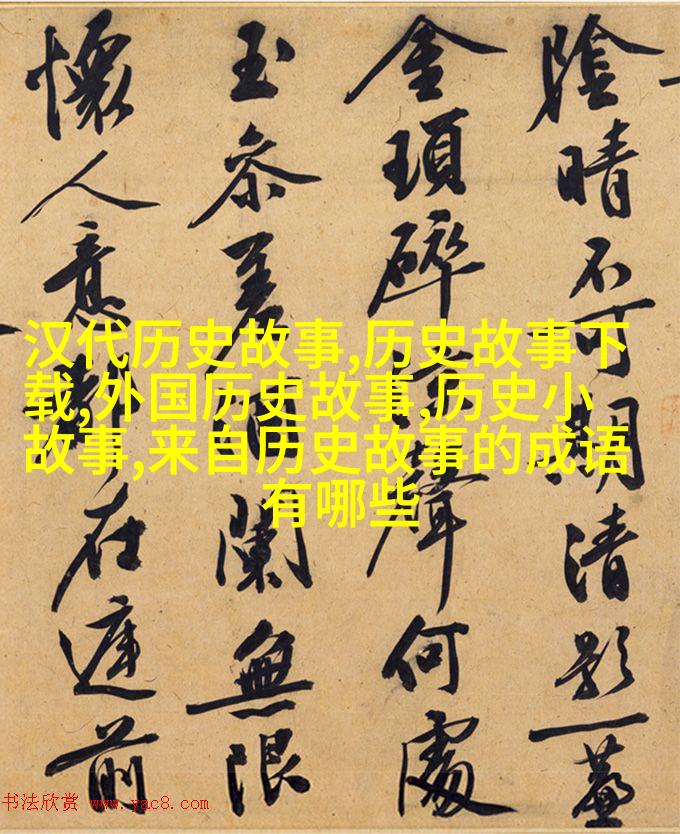 陰晴不可期清影一
金瑣碎聲何處
玉參差闌無限
懷人意在前
汉代历史故事,历史故事下
载,外国历史故事,历史小
故事,来自历史故事的成语
有哪些
书法欣赏 www.yac8.com